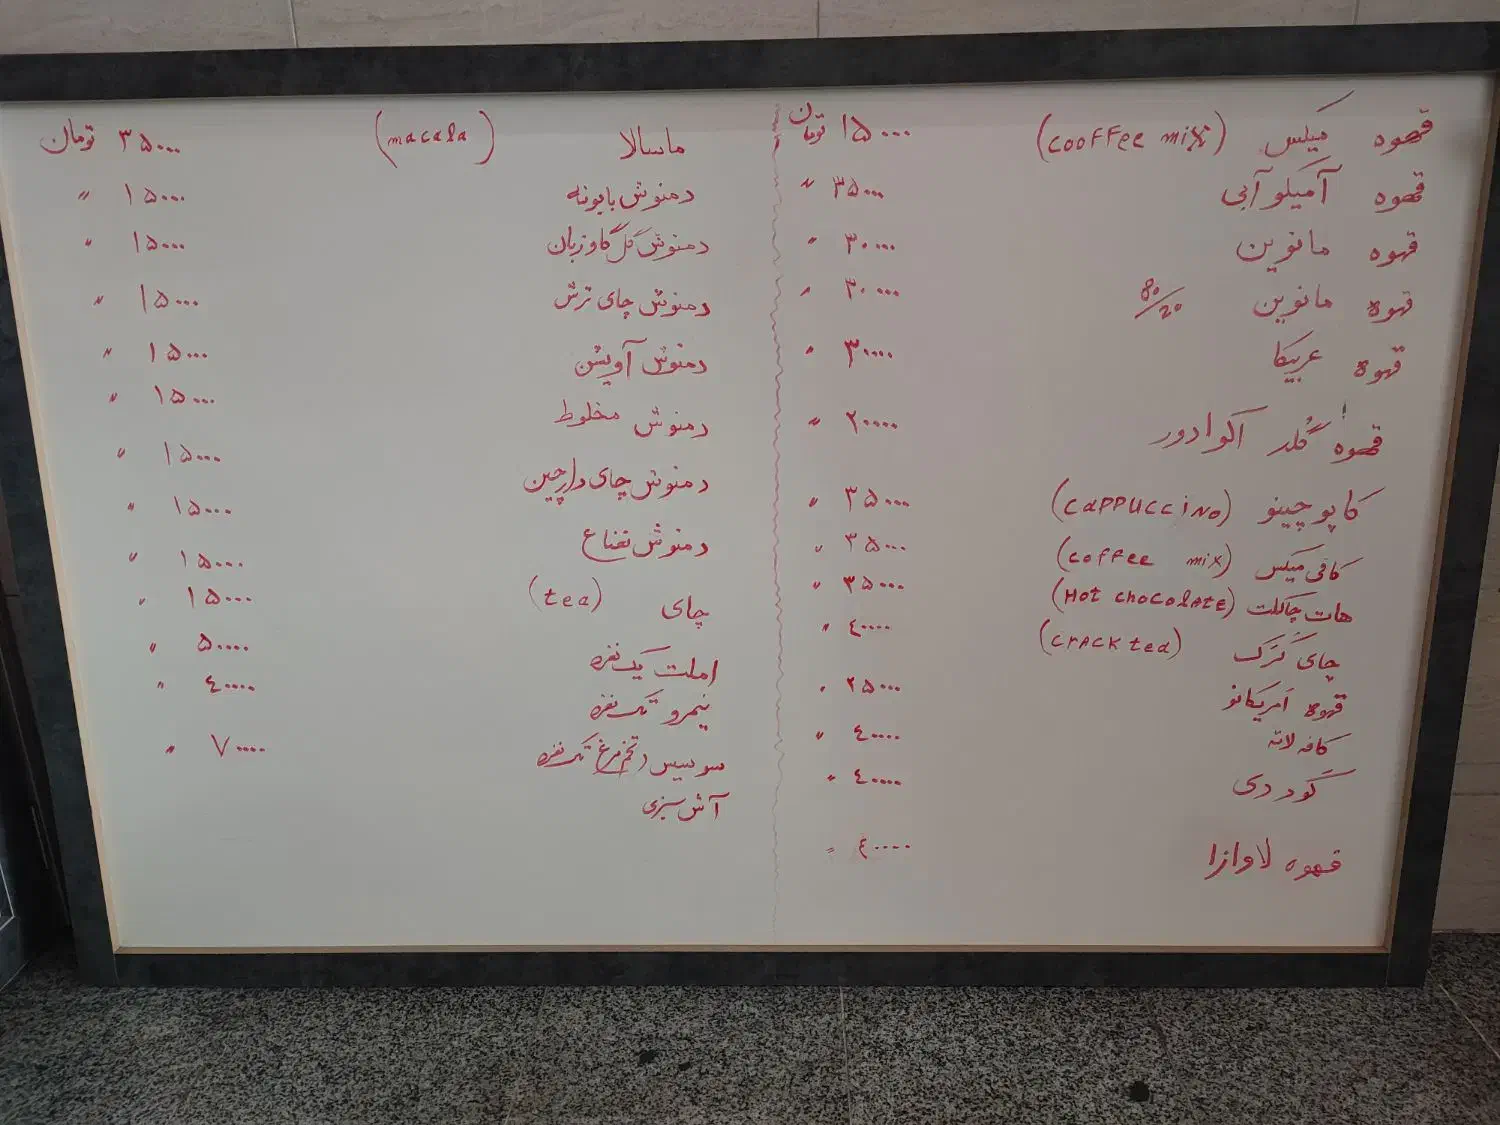 قهوه میکس (cooffee mix) ۱۵۰۰۰ تومان
قهوه آمیلو آبی ۳۵۰۰۰ "
قهوه مانوین ۳۰۰۰۰ "
قهوه مانوین 80/20 ۳۰۰۰۰ "
قهوه عربیکا ۳۰۰۰۰ "
قهوه گلد اکوادور ۲۰۰۰۰ "
کاپوچینو (cappuccino) ۳۵۰۰۰ "
کافی میکس (coffee mix) ۳۵۰۰۰ "
هات چاکلت (Hot chocolate) ۳۵۰۰۰ "
چای کَرَک (crack tea) ٤۰۰۰۰ "
قهوه امریکانو ۲۵۰۰۰ "
کافه لاته ٤۰۰۰۰ "
گود دی ٤۰۰۰۰ "
قهوه لاوازا ٤۰۰۰۰ "
ماسالا (macala) ۳۵۰۰۰ تومان
دمنوش بابونه ۱۵۰۰۰ "
دمنوش گل گاوزبان ۱۵۰۰۰ "
دمنوش چای ترش ۱۵۰۰۰ "
دمنوش آویشن ۱۵۰۰۰ "
۱۵۰۰۰ "
دمنوش مخلوط ۱۵۰۰۰ "
دمنوش چای دارچین ۱۵۰۰۰ "
دمنوش نعناع ۱۵۰۰۰ "
چای (tea) ۱۵۰۰۰ "
املت یک نفره ۵۰۰۰۰ "
نیمرو تک نفره ٤۰۰۰۰ "
سوسیس تخم مرغ تک نفره ۷۰۰۰۰ "
آش سبزی